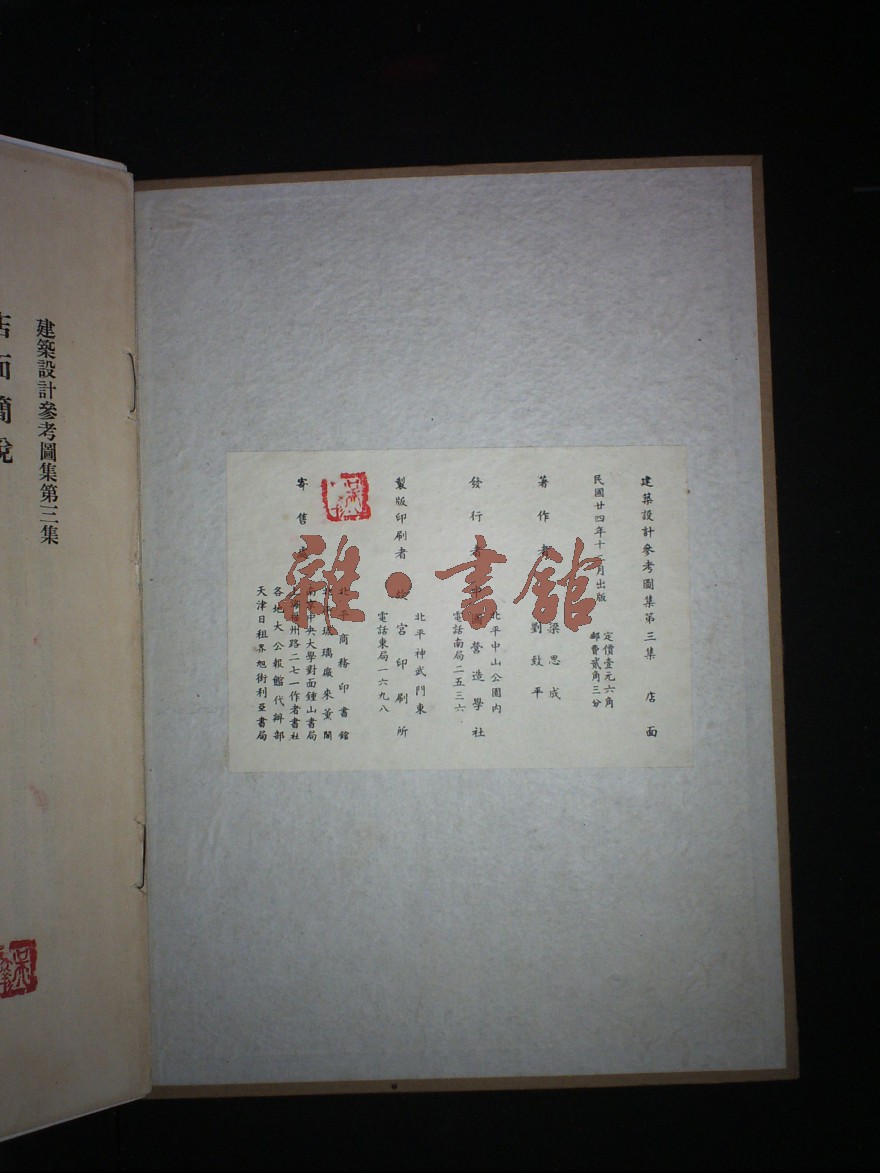 建築設計參考圖集第三集　店面
民國廿四年十二月出版
定價壹元六角
郵費貳角三分
著作者
梁思成
劉致平
發行者　中國營造學社
北平中山公園內
電話南局二五三六
製版印刷者　故宮印刷所
北平神武門東
電話東局一六九八
寄售處
北平商務印書館
北平琉璃廠來薰閣
南京中央大學對面鍾山書局
上海福州路二七一作者書社
各地大公報館代辦部
天津日租界旭街利亞書局
建築設計參考圖集第三集
店面簡說
雜·書館